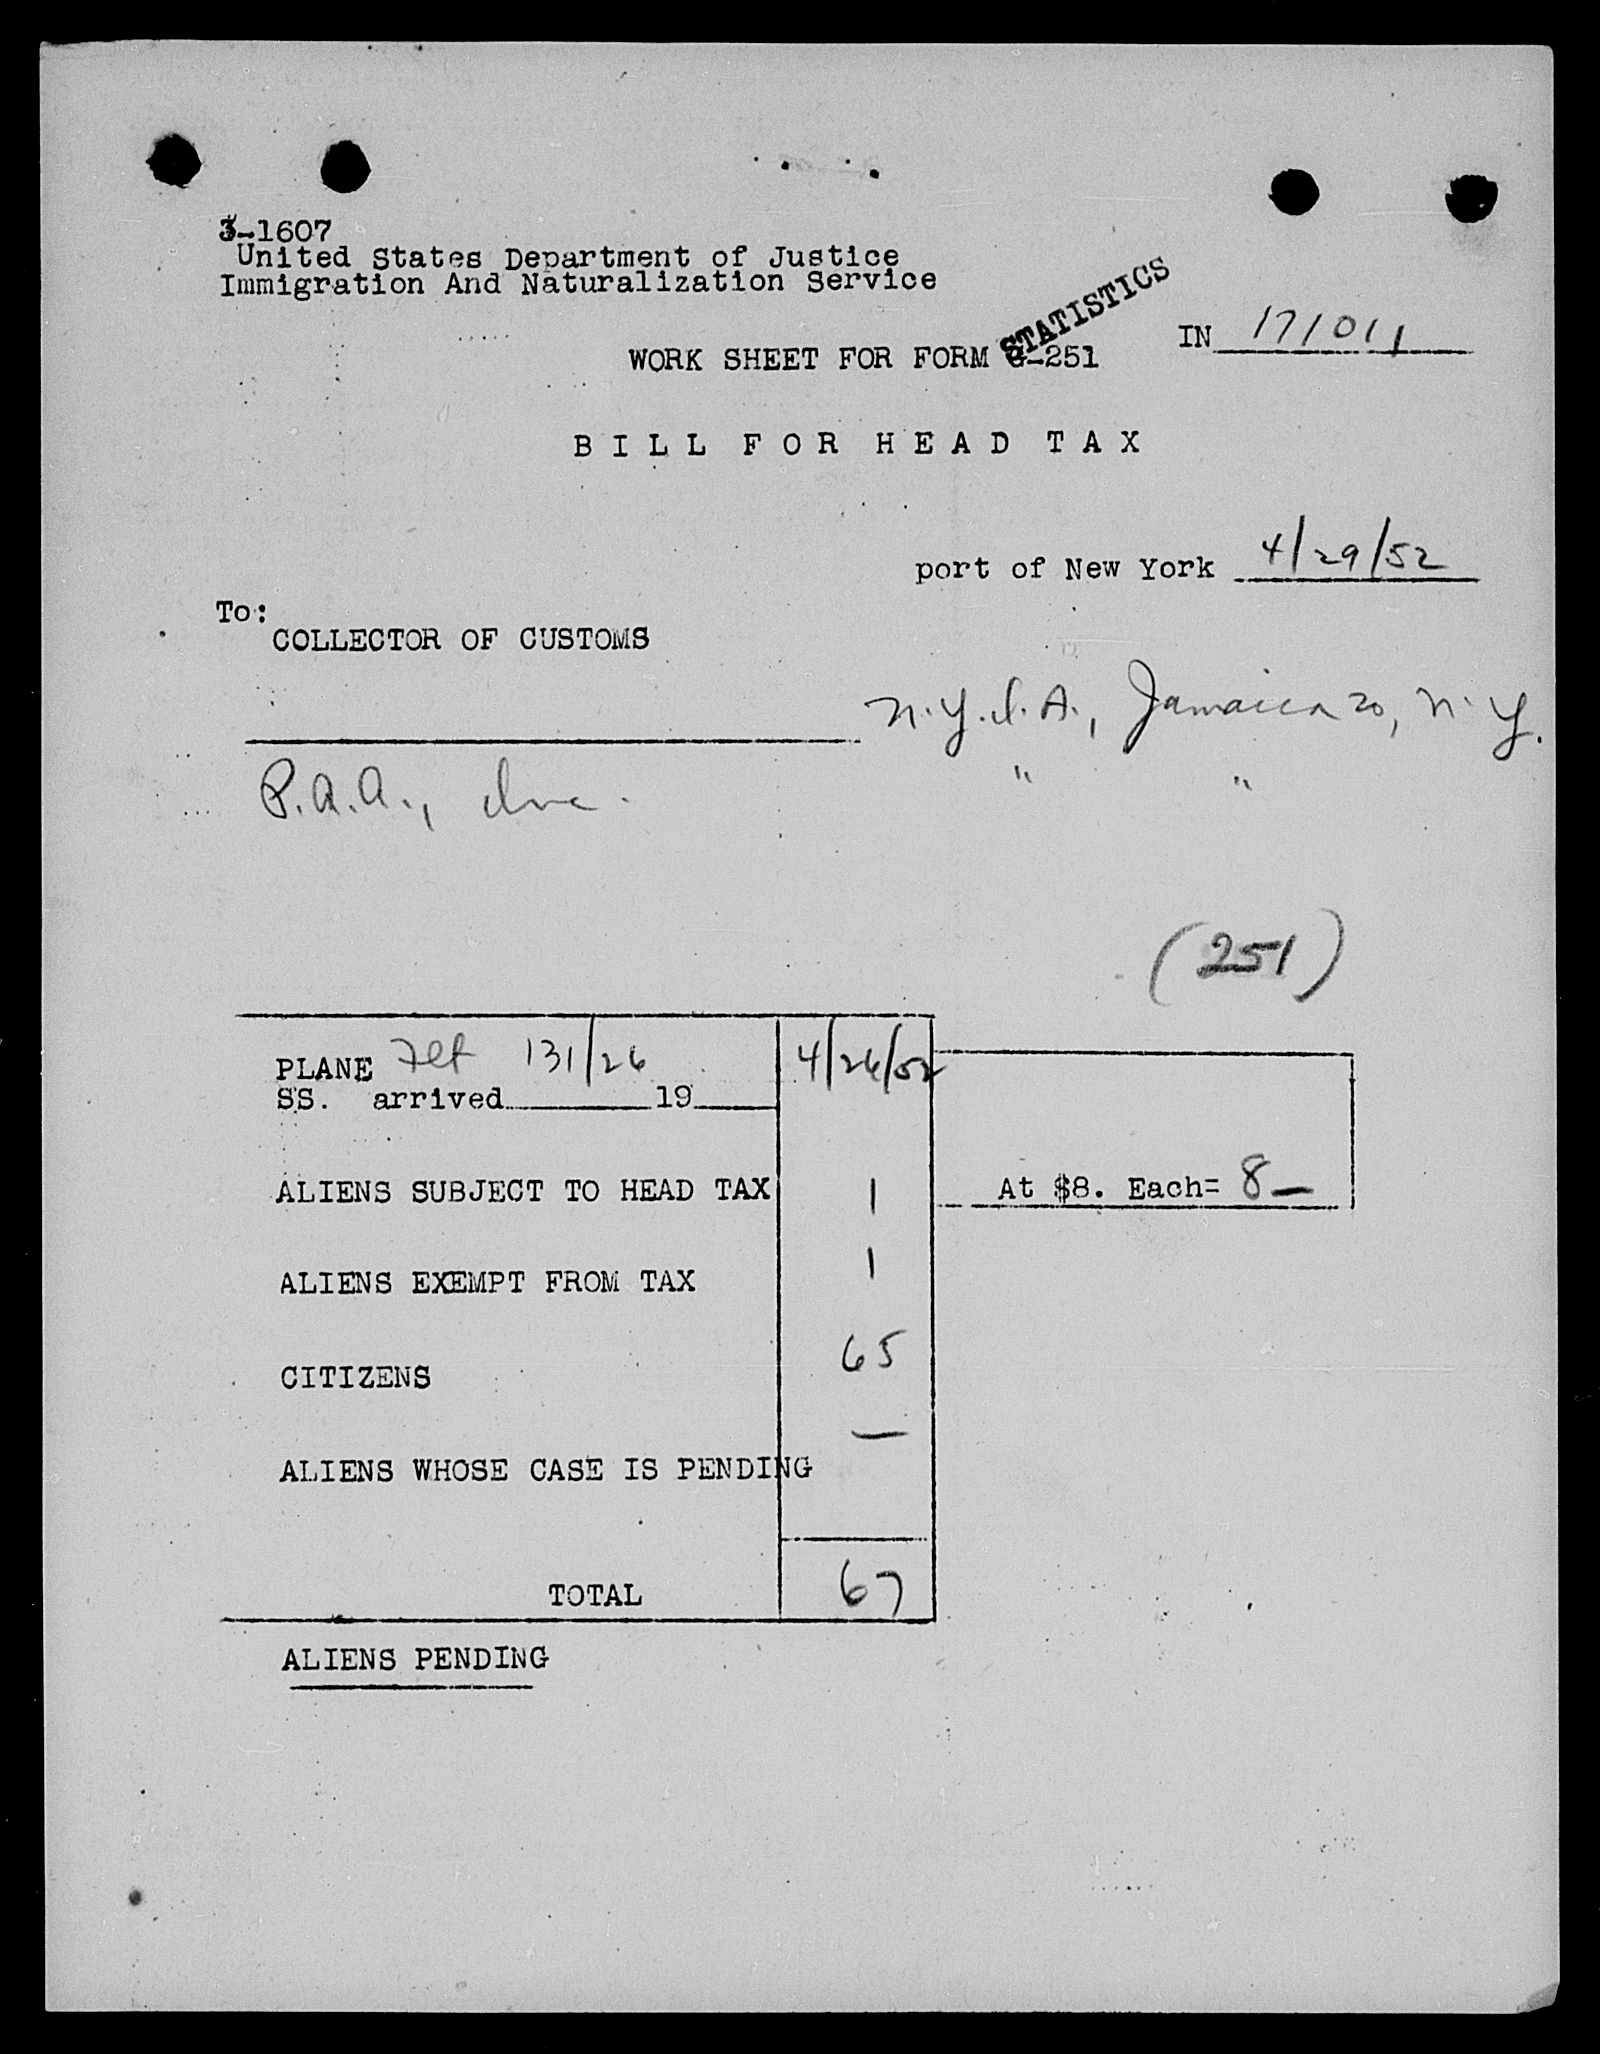 3-1607
United States Department of Justice
Immigration And Naturalization Service
STATISTICS
WORK SHEET FOR FORM G-251
IN 171011
BILL FOR HEAD TAX
port of New York 4/29/52
To:
COLLECTOR OF CUSTOMS
N.Y.I.A., Jamaica 20, N.Y.
P.A.A., Inc. " "
(251)
PLANE Flt 131/26 4/26/52
SS. arrived 19
ALIENS SUBJECT TO HEAD TAX 1 At $8. Each= 8—
ALIENS EXEMPT FROM TAX 1
CITIZENS 65
ALIENS WHOSE CASE IS PENDING —
TOTAL 67
ALIENS PENDING